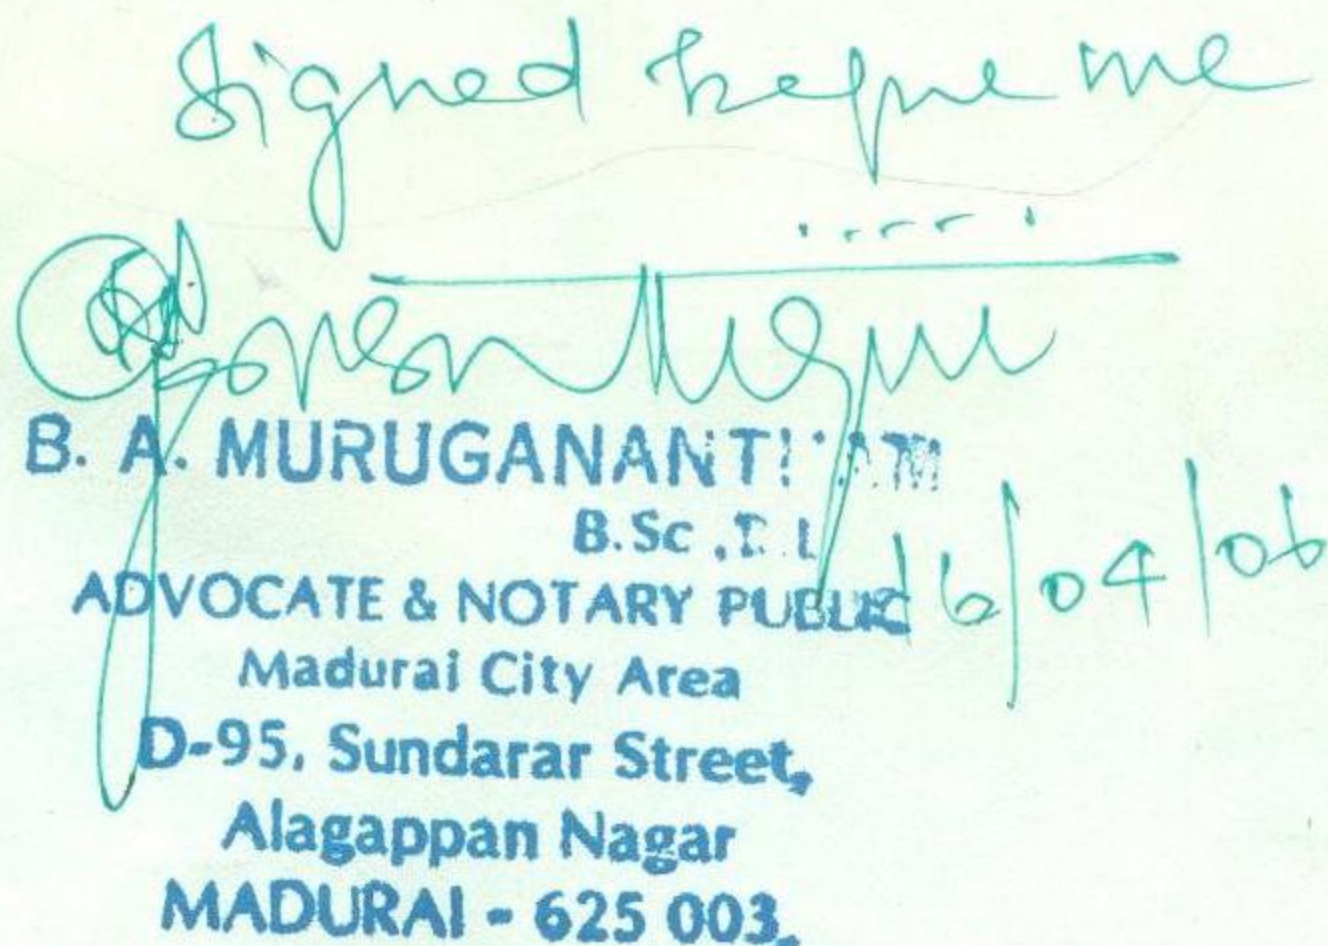 Signed before me
B. A. MURUGANANTHAM
B.Sc., B.L
ADVOCATE & NOTARY PUBLIC
16/04/06
Madurai City Area
D-95, Sundarar Street,
Alagappan Nagar
MADURAI - 625 003.